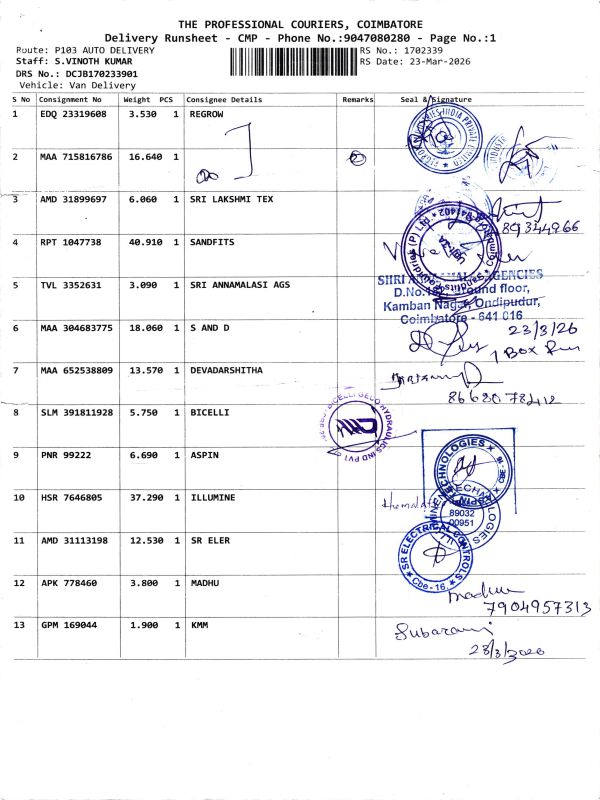 THE PROFESSIONAL COURIERS, COIMBATORE
Delivery Runsheet - CMP - Phone No.:9047080280 - Page No.:1
Route: P103 AUTO DELIVERY
RS No.: 1702339
Staff: S.VINOTH KUMAR
RS Date: 23-Mar-2026
DRS No.: DCJB170233901
Vehicle: Van Delivery
S No Consignment No Weight PCS Consignee Details Remarks Seal & Signature
1 EDQ 23319608 3.530 1 REGROW
2 MAA 715816786 16.640 1
3 AMD 31899697 6.060 1 SRI LAKSHMI TEX
4 RPT 1047738 40.910 1 SANDFITS
5 TVL 3352631 3.090 1 SRI ANNAMALASI AGS
SHRI AGENCIES
D.No. floor,
Kamban Nagar, Ondipudur,
Coimbatore - 641 016
6 MAA 304683775 18.060 1 S AND D
23/3/26
1 Box
7 MAA 652538809 13.570 1 DEVADARSHITHA
8 SLM 391811928 5.750 1 BICELLI
9 PNR 99222 6.690 1 ASPIN
10 HSR 7646805 37.290 1 ILLUMINE
89032
00951
11 AMD 31113198 12.530 1 SR ELER
SR ELECTRICAL CONTROLS
Cbe - 16.
12 APK 778460 3.800 1 MADHU
7904957313
13 GPM 169044 1.900 1 KMM